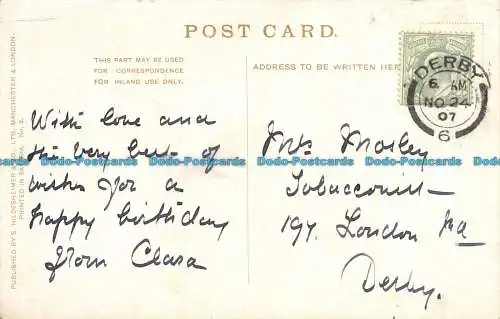 POST CARD.
THIS PART MAY BE USED
FOR CORRESPONDENCE
FOR INLAND USE ONLY.
ADDRESS TO BE WRITTEN HER
DERBY
6 AM
NO 24
07
6
With love and
the very best of
wishes for a
happy birthday
from Clara
Mrs Mosley
Tobacconist
197. London Rd
Derby.
PUBLISHED BY S. HILDESHEIMER & CO., LTD. MANCHESTER & LONDON.
PRINTED IN No.
Dodo-Postcards.com Dodo-Postcards.com Dodo-Postcards.com Dodo-Postcards.com